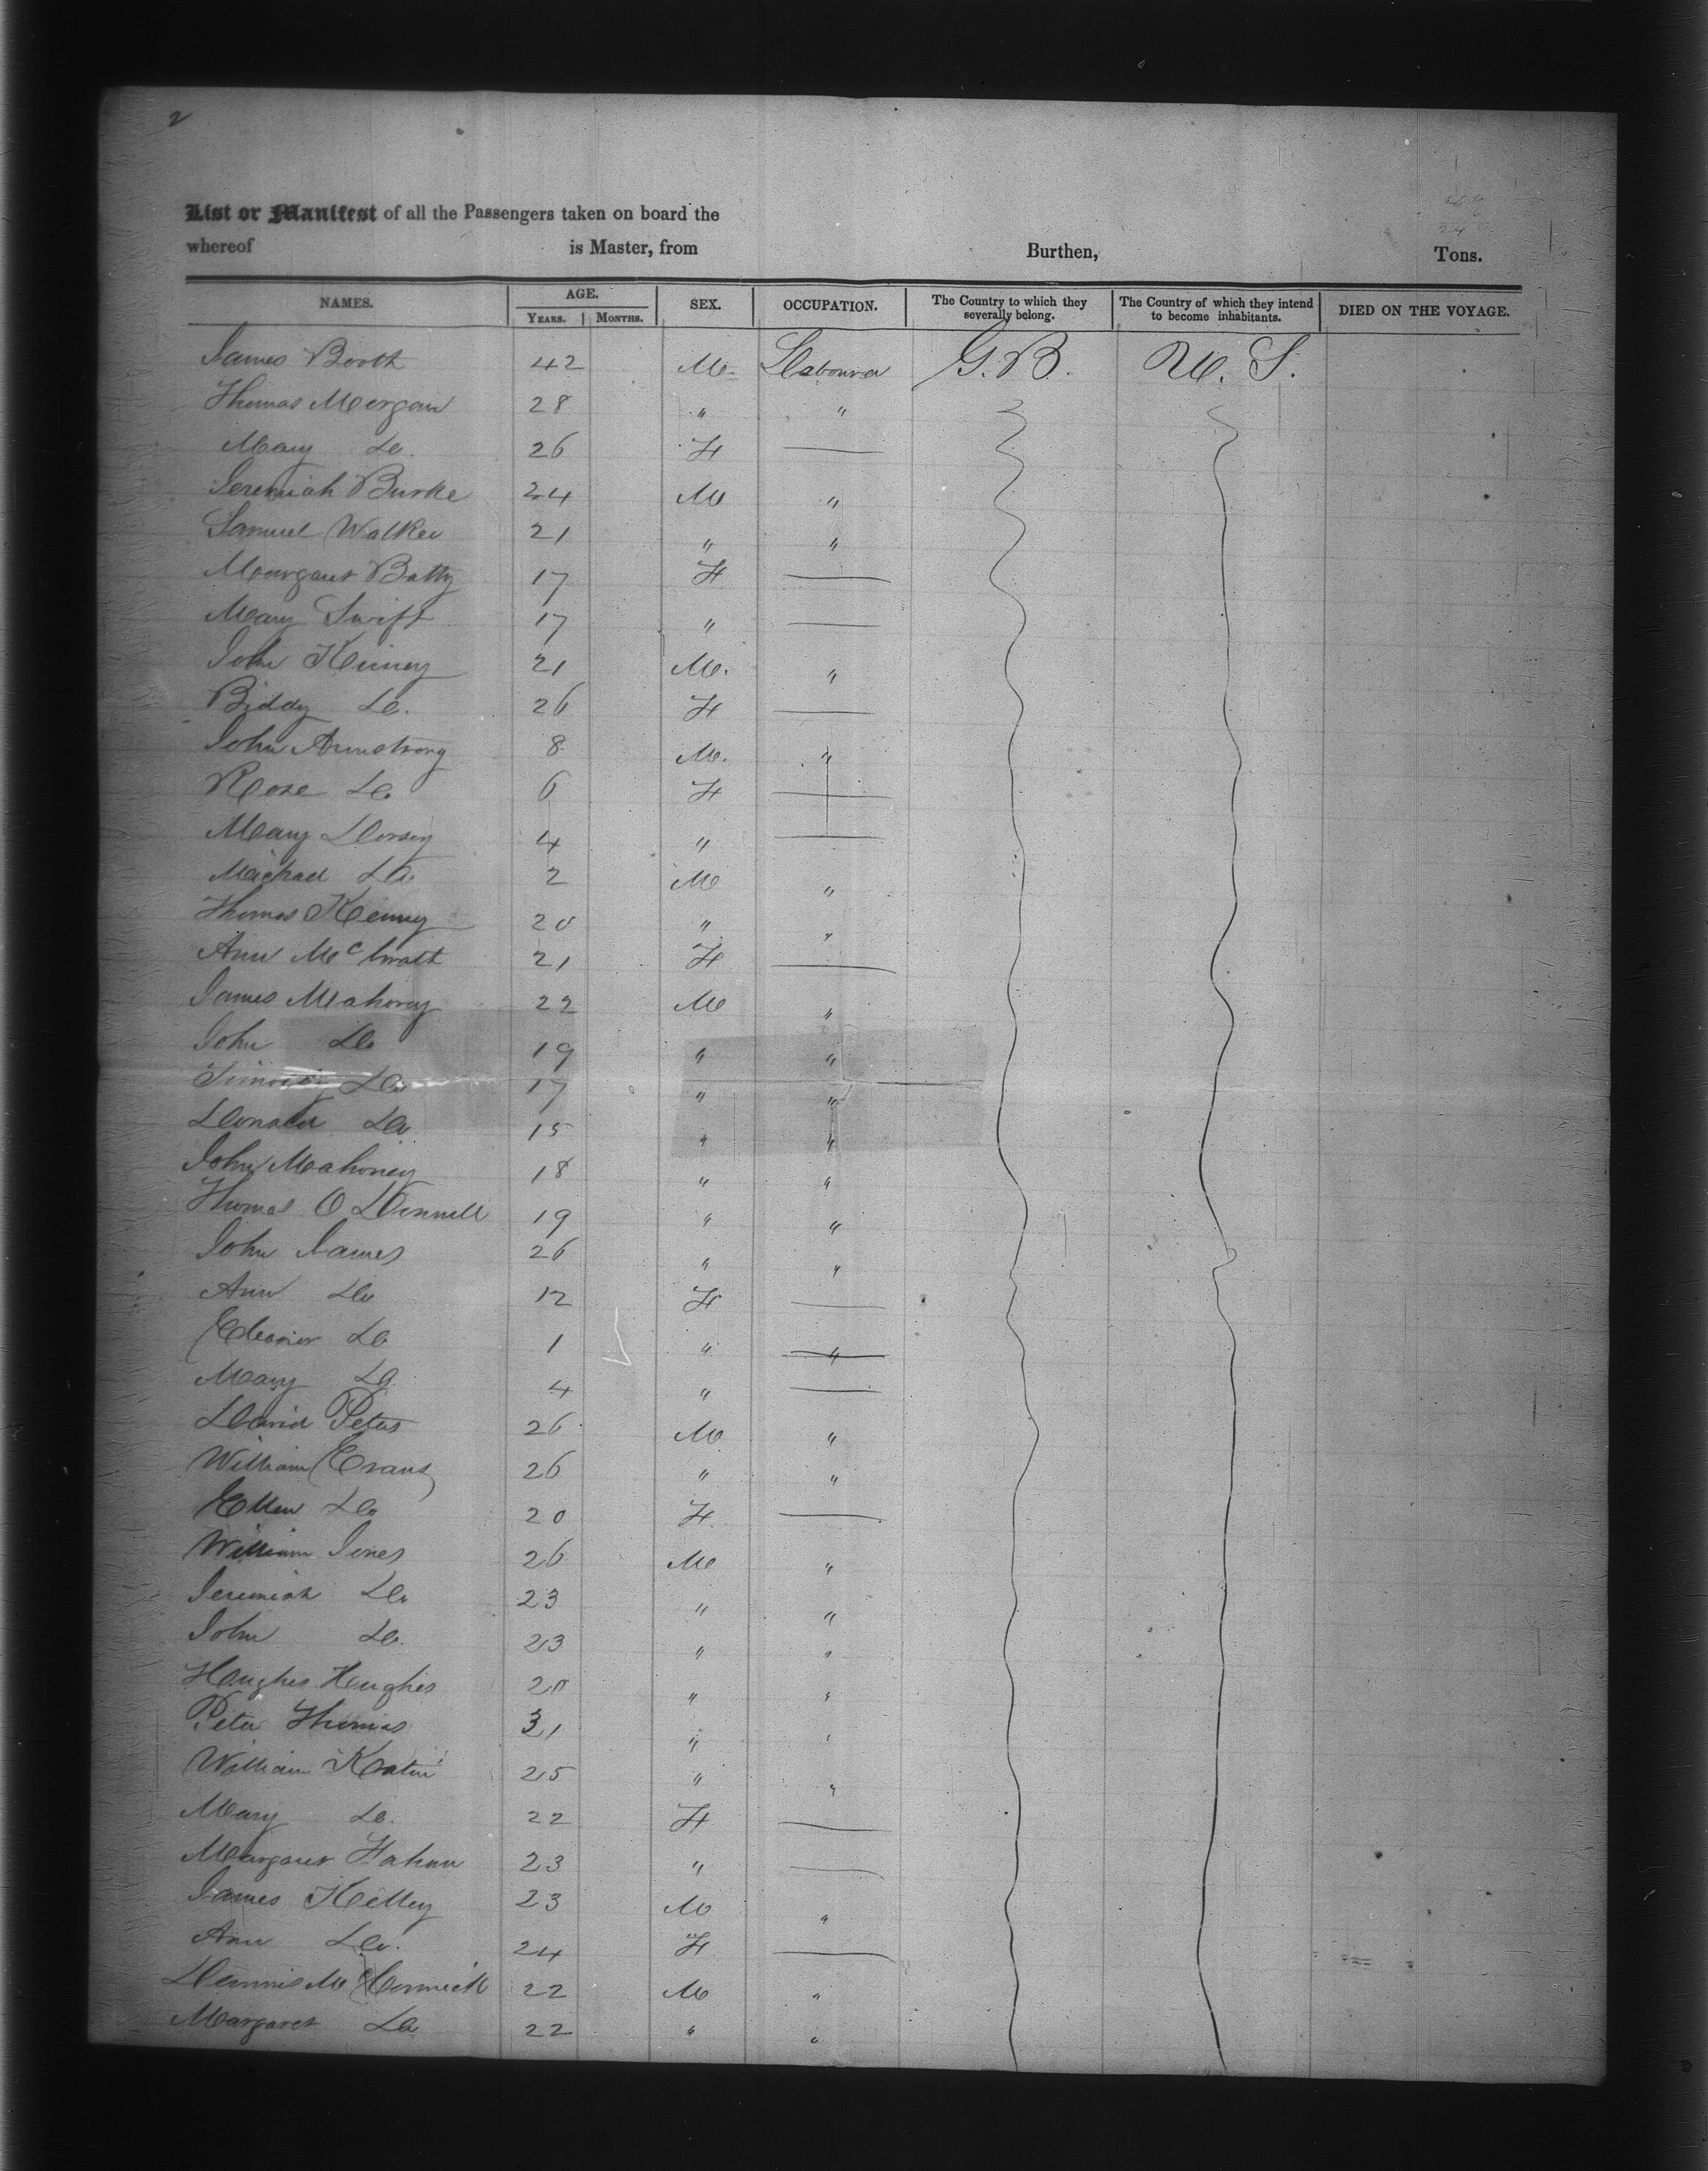 2
List or Manifest of all the Passengers taken on board the
whereof is Master, from Burthen, Tons.
NAMES. AGE. SEX. OCCUPATION. The Country to which they severally belong. The Country of which they intend to become inhabitants. DIED ON THE VOYAGE.
YEARS. MONTHS.
James Booth 42 M Labourer G.B. U.S.
Thomas Morgan 28 " "
Mary Do. 26 F
Jeremiah Burke 24 M "
Samuel Walker 21 " "
Margaret Batty 17 F
Mary Swift 17 "
John Kinney 21 M. "
Biddy Do. 26 F
John Armstrong 8 M. "
Rose Do 6 F
Mary Dorsey 4 "
Michael Do 2 M "
Thomas Kenny 20 " "
Ann Mc 21 F
James Mahony 22 M "
John Do 19 " "
Timothy Do 17 " "
Do 15 " "
John Mahoney 18 " "
Thomas O Donnell 19 " "
John James 26 " "
Ann Do 12 F
Eleanor Do 1 " "
Mary Do 4 "
David Peters 26 M "
William Evans 26 " "
Ellen Do 20 F
William Jones 26 M "
Jeremiah Do 23 " "
John Do. 23 " "
Hughes Hughes 20 " "
Peter Thomas 31 " "
William 25 " "
Mary Do. 22 F
Margaret 23 "
James Kelley 23 M "
Ann Do. 24 F
Dennis McCormick 22 M "
Margaret Do 22 " "